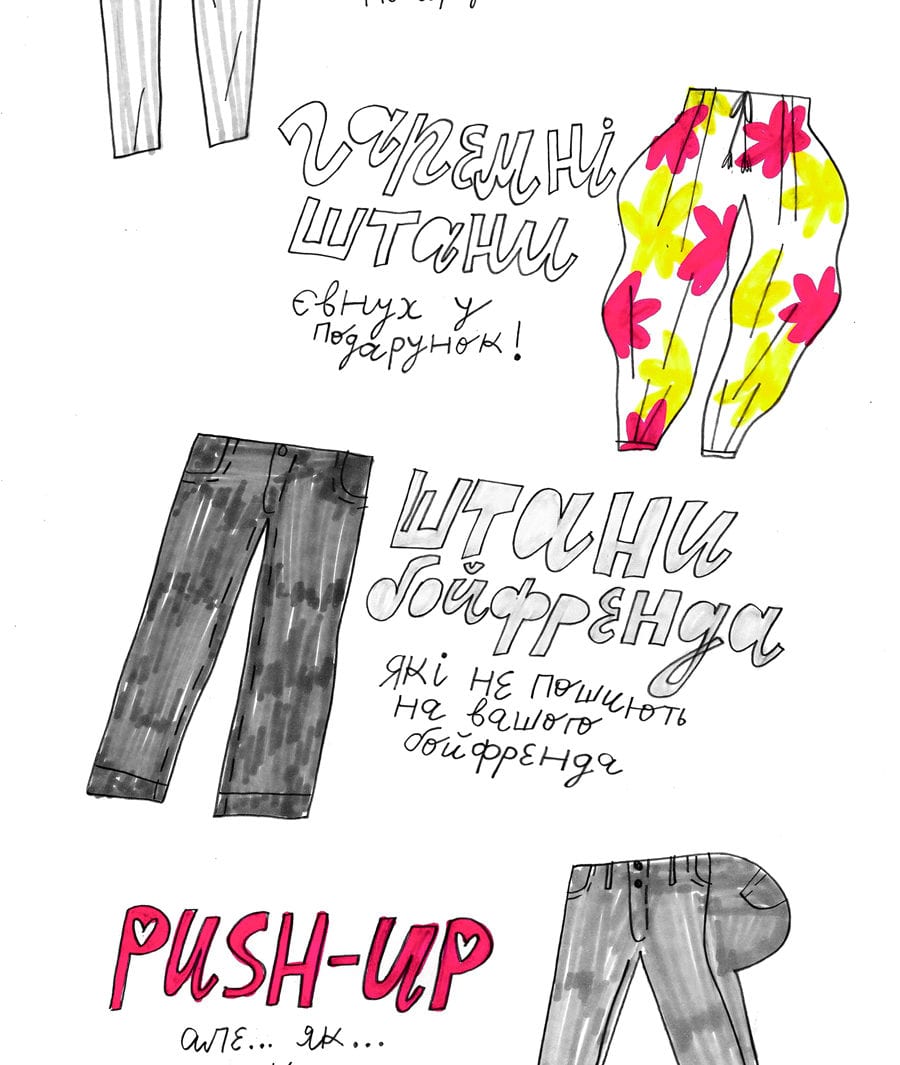 гаремні
штани
євнух у
подарунок!
штани
бойфренда
які не пошиють
на вашого
бойфренда
PUSH-UP
але... як...